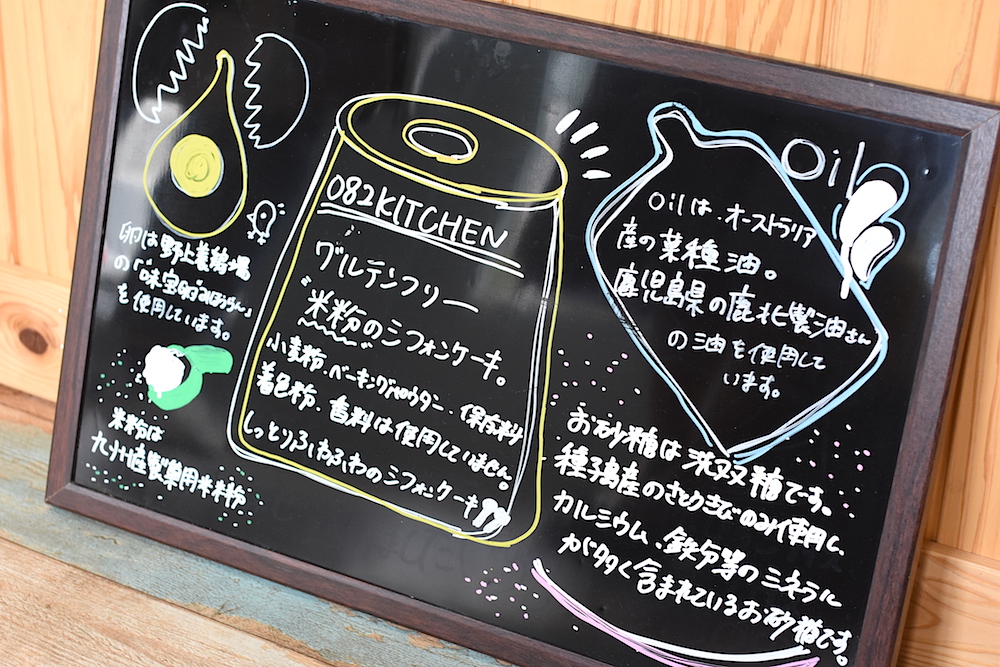 082KITCHEN
グルテンフリー
"米粉のシフォンケーキ。
小麦粉、ベーキングパウダー、保存料
着色粉、香料は使用していません。
しっとりふわふわのシフォンケーキ
卵は野上養鶏場
の「味宝卵
を使用しています。
米粉は
九州産製菓用米粉
Oil
Oilは、オーストラリア
産の菜種油。
鹿児島県の鹿北製油さん
の油を使用して
います。
お砂糖は洗双糖です。
種子島産のさとうきびのみ使用し、
カルシウム、鉄分等のミネラル
が多く含まれているお砂糖です。